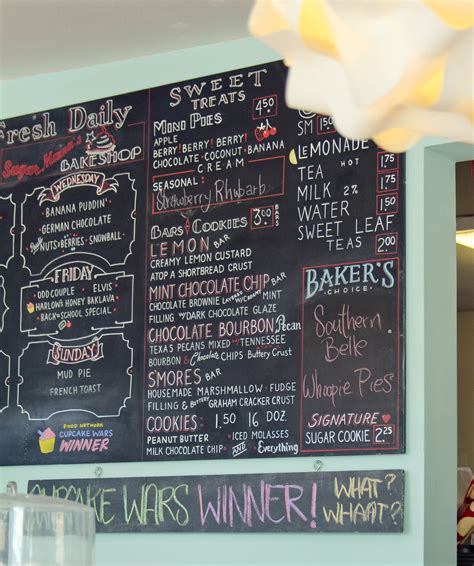 Fresh Daily
Sugar Mama's
BAKESHOP
WEDNESDAY
BANANA PUDDIN'
GERMAN CHOCOLATE
NUTS & BERRIES · SNOWBALL
FRIDAY
ODD COUPLE · ELVIS
HARLOW'S HONEY BAKLAVA
BACK-SCHOOL SPECIAL
SUNDAY
MUD PIE
FRENCH TOAST
FOOD NETWORK
CUPCAKE WARS
WINNER
SWEET
TREATS
MINI PIES 4.50
APPLE
BERRY! BERRY! BERRY!
CHOCOLATE · COCONUT · BANANA
CREAM
SEASONAL:
Strawberry Rhubarb
BARS & COOKIES 3.00
LEMON BAR
CREAMY LEMON CUSTARD
ATOP A SHORTBREAD CRUST
MINT CHOCOLATE CHIP BAR
CHOCOLATE BROWNIE LAYERED W/ CREAMY MINT
FILLING W/ DARK CHOCOLATE GLAZE
CHOCOLATE BOURBON Pecan
TEXAS PECANS MIXED W/ TENNESSEE
BOURBON & Chocolate CHIPS Buttery Crust
SMORES BAR
HOUSEMADE MARSHMALLOW · FUDGE
FILLING & BUTTERY GRAHAM CRACKER CRUST
COOKIES: 1.50 16 DOZ
PEANUT BUTTER · ICED MOLASSES
MILK CHOCOLATE CHIP AND Everything
SM
LEMONADE
1.75
TEA HOT 1.50
MILK 2% 1.75
WATER 1.50
SWEET LEAF
TEAS 2.00
BAKER'S
CHOICE
Southern
Belle
Whoopie Pies
SIGNATURE
SUGAR COOKIE 2.25
CUPCAKE WARS WINNER! WHAT?
WHAAT?